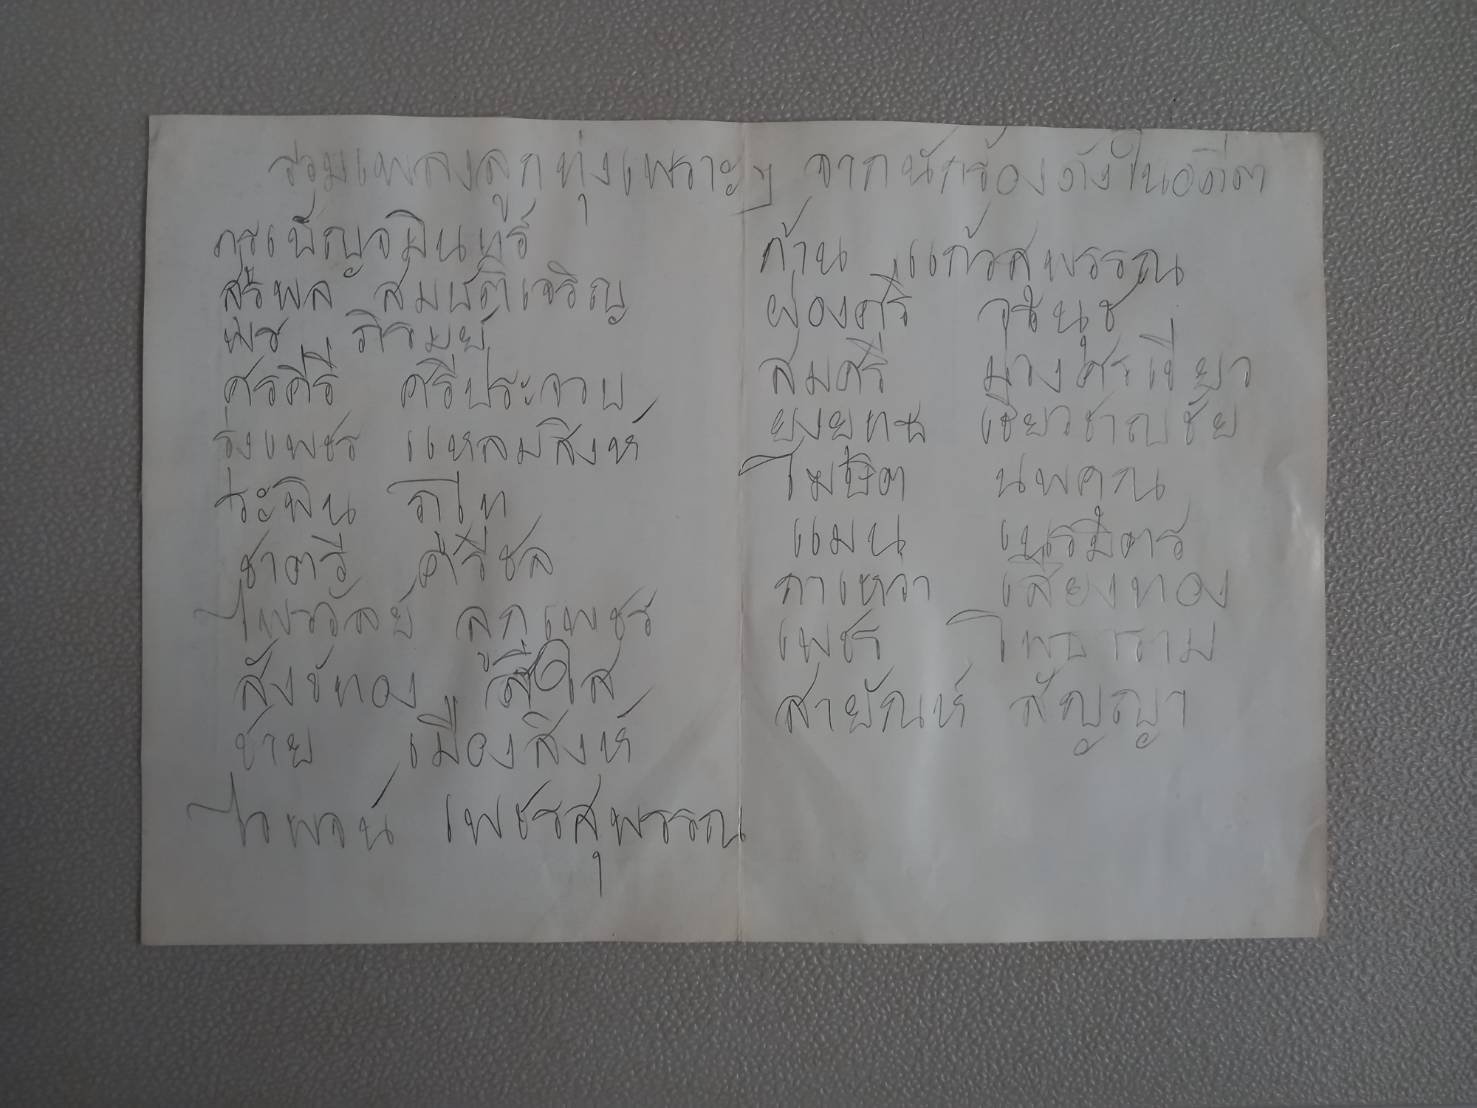 รวมเพลงลูกทุ่งเพราะๆ จากนักร้องดังในอดีต
สุรพล สมบัติเจริญ
ศรคีรี ศรีประจวบ
รุ่งเพชร แหลมสิงห์
ระพิน ภูไท
ชาตรี ศรีชล
ไพรวัลย์ ลูกเพชร
สังข์ทอง สีใส
ชาย เมืองสิงห์
ไวพจน์ เพชรสุพรรณ
ก้าน แก้วสุพรรณ
ผ่องศรี วรนุช
สมศรี ม่วงศรเขียว
ยงยุทธ เชี่ยวชาญชัย
โฆษิต นพคุณ
แมน เนรมิตร
กาเหว่า เสียงทอง
เพชร โพธาราม
สายัณห์ สัญญา